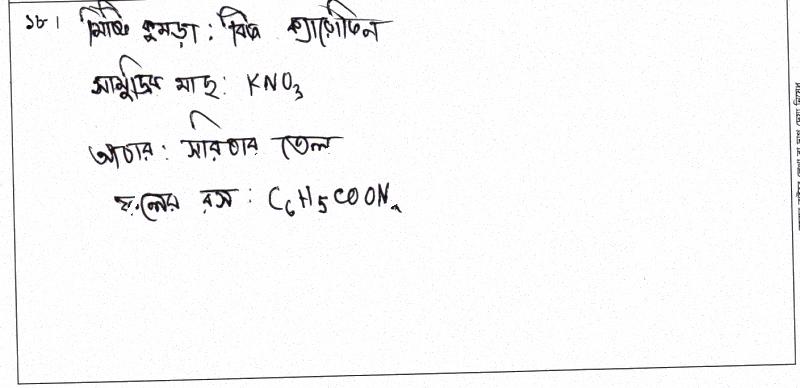 ১৮। মিষ্টি কুমড়া : বিটা ক্যারোটিন
সামুদ্রিক মাছ : KNO3
আচার : সরিষার তেল
ফলের রস : C6H5COONa